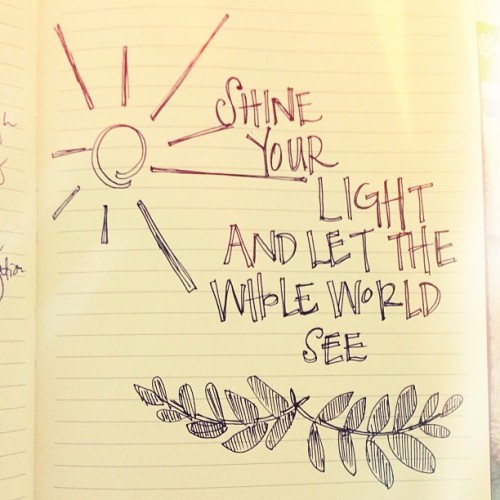 SHINE
YOUR
LIGHT
AND LET THE
WHOLE WORLD
SEE